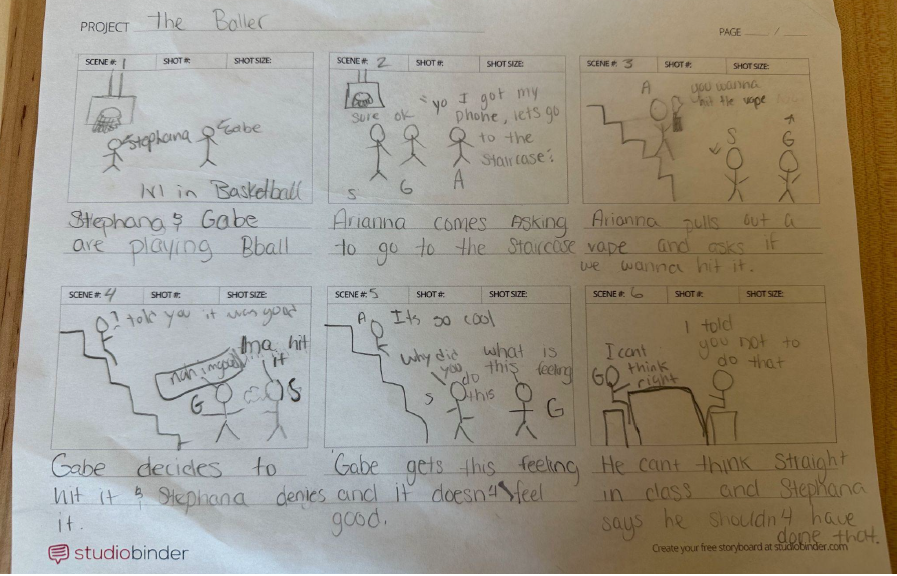 PROJECT The Baller
PAGE /
SCENE #: 1 SHOT #: SHOT SIZE:
Stephana
Gabe
1v1 in Basketball
Stephana & Gabe
are playing Bball
SCENE #: 2 SHOT #: SHOT SIZE:
sure ok
"yo I got my
phone, lets go
to the
staircase"
S G A
Arianna comes Asking
to go to the staircase
SCENE #: 3 SHOT #: SHOT SIZE:
A
you wanna
hit the vape
S G
Arianna pulls out a
vape and asks if
we wanna hit it.
SCENE #: 4 SHOT #: SHOT SIZE:
I told you it was good
Ima hit
it
nah im good
G S
Gabe decides to
hit it & Stephana denies
it.
SCENE #: 5 SHOT #: SHOT SIZE:
A Its so cool
Why did
you
do
this
what is
this feeling
S G
Gabe gets this feeling
and it doesn't feel
good.
SCENE #: 6 SHOT #: SHOT SIZE:
I cant
think
right
I told
you not to
do that
G
He cant think Straight
in class and Stephana
says he shouldn't have
done that.
studiobinder
Create your free storyboard at studiobinder.com